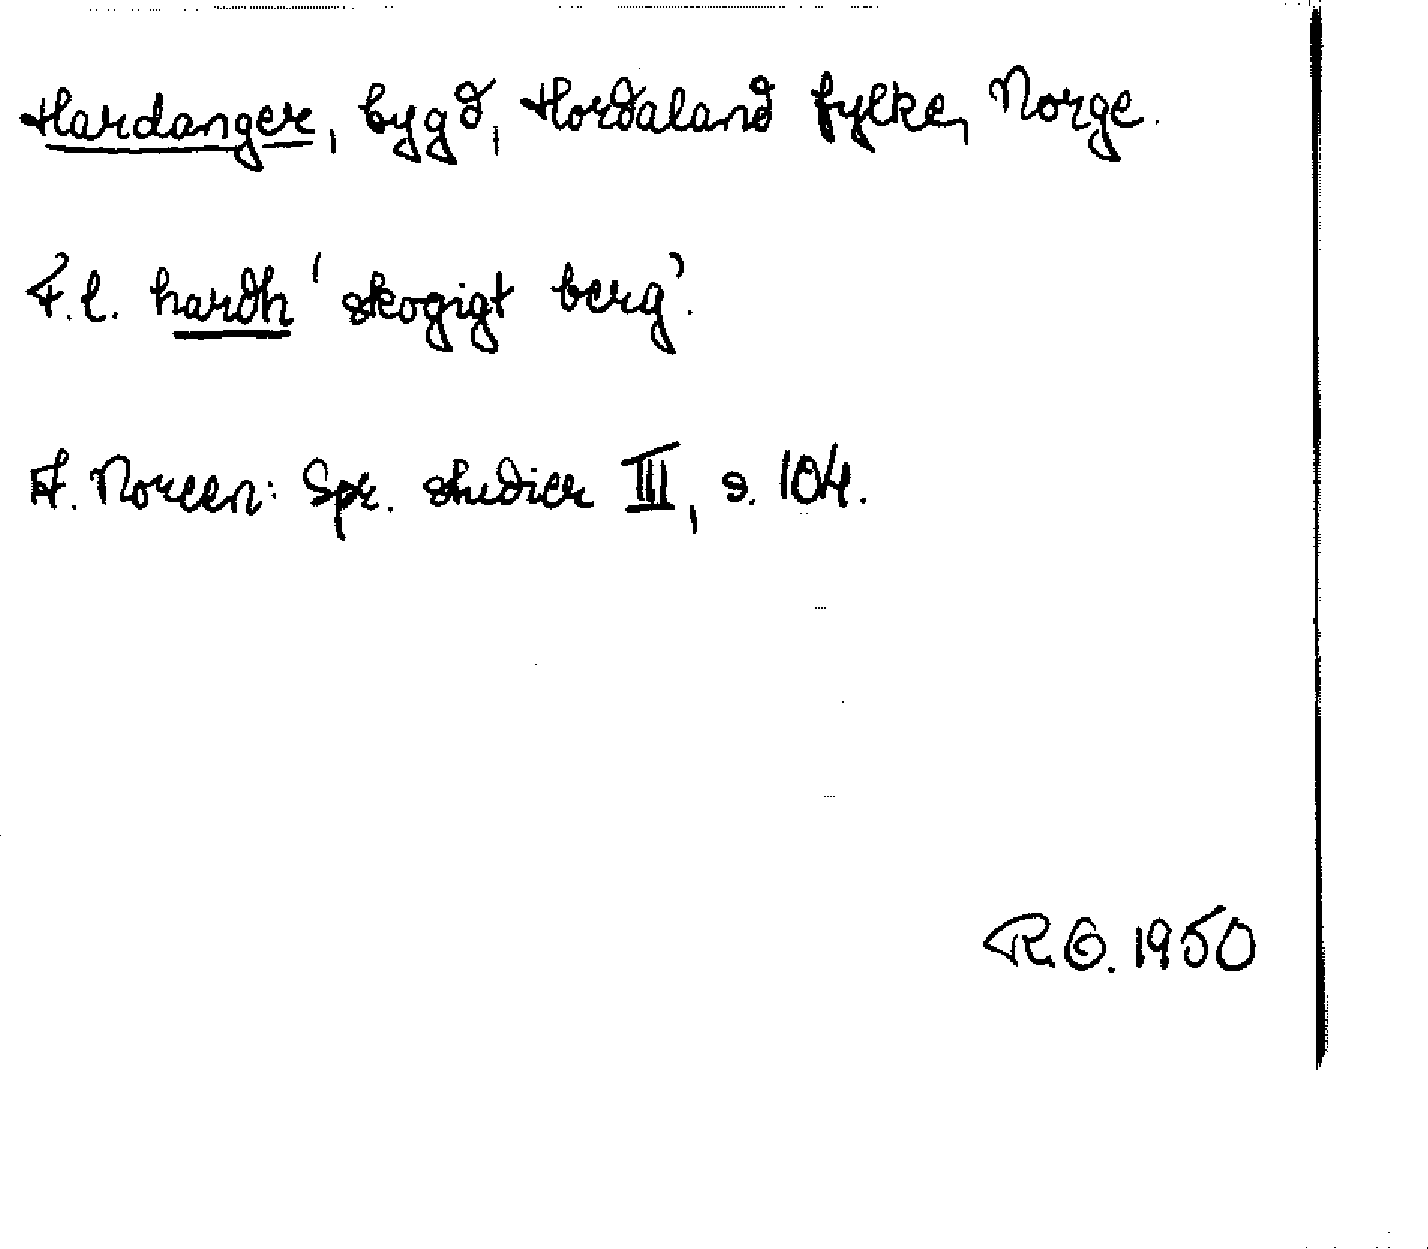 Hardanger, bygd, Hordaland fylke, Norge.
F.l. hardh 'skogigt berg'.
A. Noreen: Spr. studier III, s. 104.
R.O. 1950